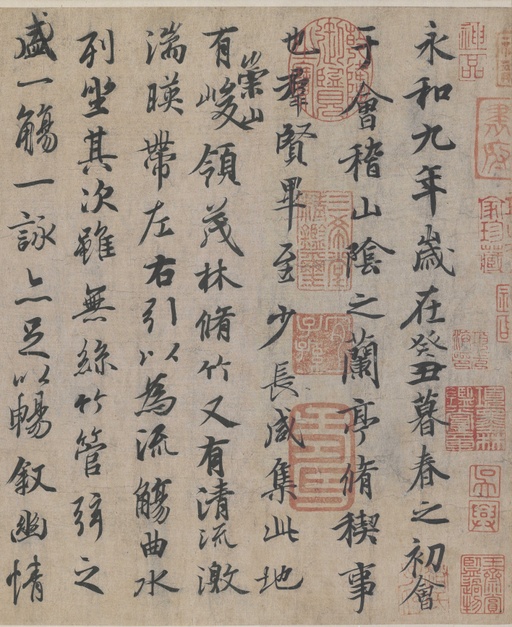 永和九年歲在癸丑暮春之初會
于會稽山陰之蘭亭脩稧事
也羣賢畢至少長咸集此地
有崇山峻領茂林脩竹又有清流激
湍暎帶左右引以為流觴曲水
列坐其次雖無絲竹管弦之
盛一觴一詠亦足以暢敘幽情
神品